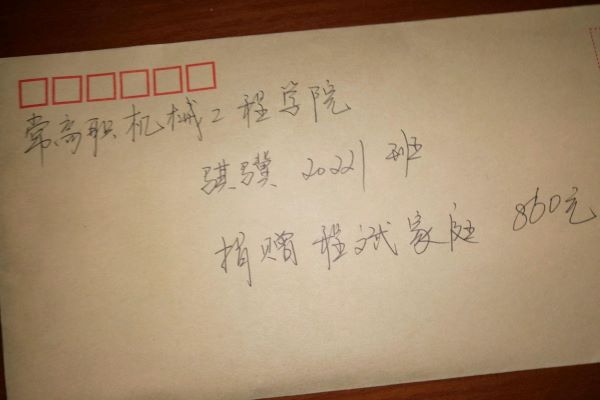 常高职机械工程学院
骐骥 20221 班
捐赠程斌家庭 860元